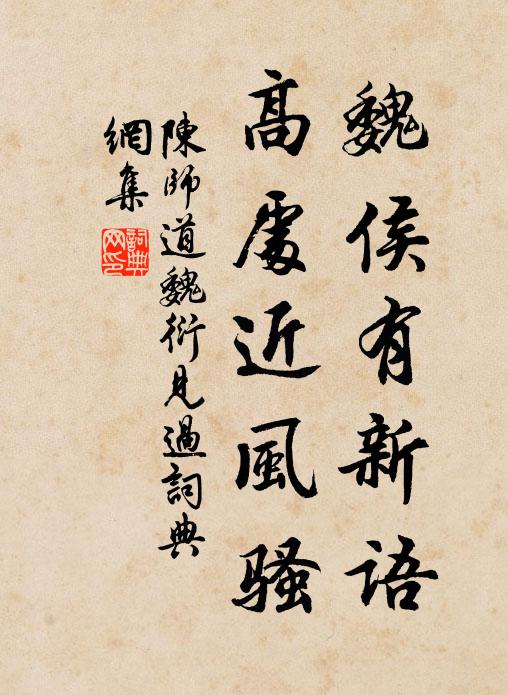 魏侯有新語
高處近風騷
陳師道魏衍見過詞典
網集
詞典
網印